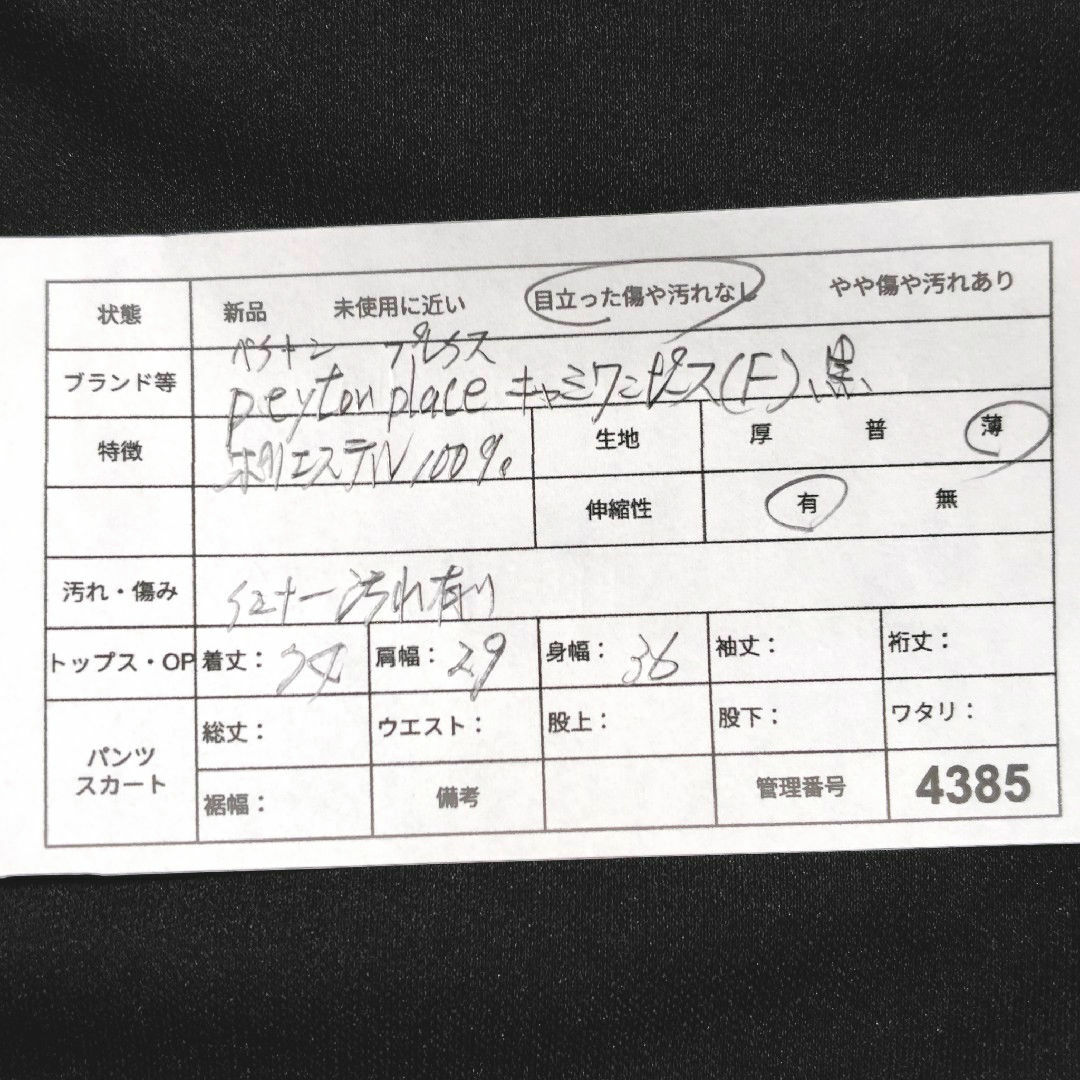 状態 新品 未使用に近い 目立った傷や汚れなし やや傷や汚れあり
ペイトン プレイス
ブランド等 peyton place キャミワンピース(F)、黒、
特徴 ポリエステル100%。 生地 厚 普 薄
伸縮性 有 無
汚れ・傷み インナー汚れ有り
トップス・OP 着丈: 肩幅: 29 身幅: 36 袖丈: 裄丈:
パンツ スカート 総丈: ウエスト: 股上: 股下: ワタリ:
裾幅: 備考 管理番号 4385